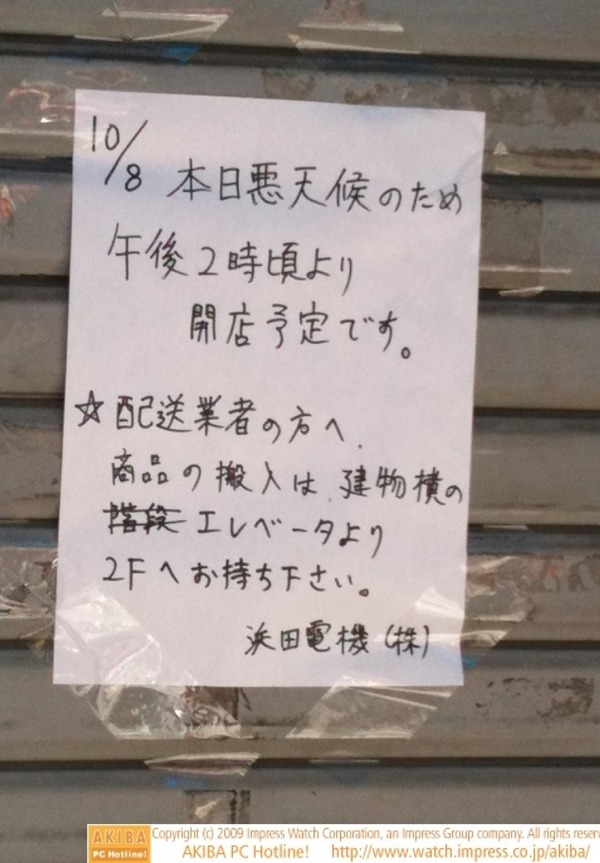 10/8 本日悪天候のため
午後2時頃より
開店予定です。
☆配送業者の方へ
商品の搬入は、建物横の
階段 エレベータより
2Fへお持ち下さい。
浜田電機(株)
AKIBA
PC Hotline!
Copyright (c) 2009 Impress Watch Corporation, an Impress Group company. All rights reserv
AKIBA PC Hotline! http://www.watch.impress.co.jp/akiba/